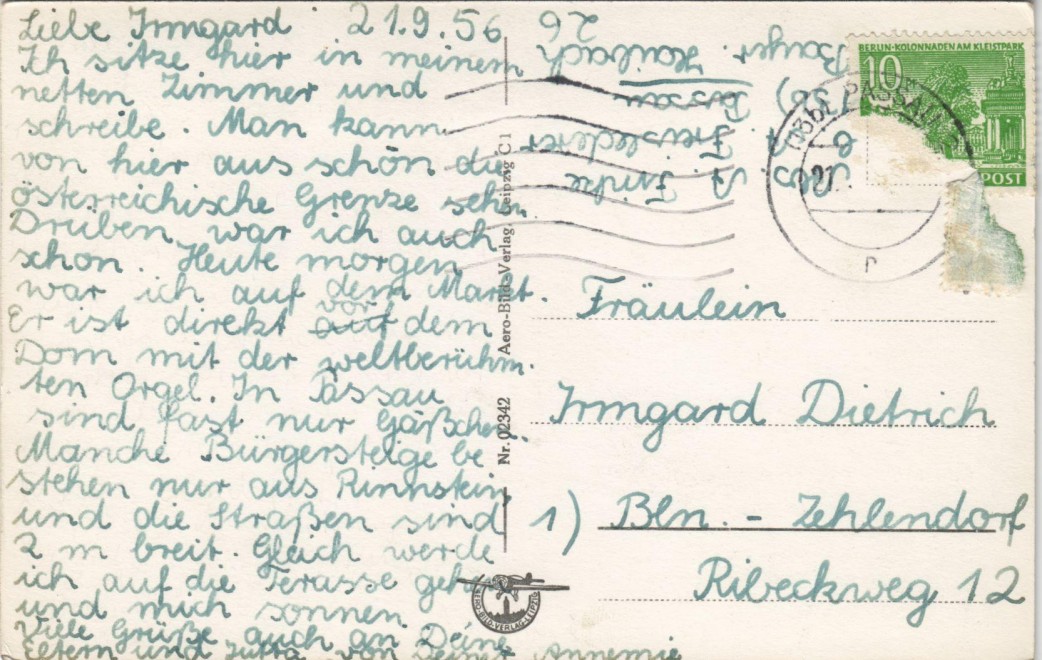 Liebe Irmgard 21.9.56
Ich sitze hier in meinem
netten Zimmer und
schreibe. Man kann
von hier aus schön die
österreichische Grenze sehn
Drüben war ich auch
schon. Heute morgen
war ich auf dem Markt.
Er ist direkt auf vor dem
Dom mit der weltberühm
ten Orgel. In Passau
sind fast nur Gäßchen.
Manche Bürgersteige be
stehen nur aus Rinnstein
und die Straßen sind
2 m breit. Gleich werde
ich auf die Terasse gehn
und mich sonnen
Viele Grüße auch an Deine
Eltern und Jutta von Deiner Annemie
Nr. 02342 Aero-Bild-Verlag, Leipzig C 1
AERO-BILD-VERLAG-LEIPZIG
A. Funke
Freislederer
Passau
Bayer. Haibach
26
BERLIN-KOLONNADEN AM KLEISTPARK
10
POST
PASSAU
21.
Fräulein
Irmgard Dietrich
1) Bln. - Zehlendorf
Ribeckweg 12